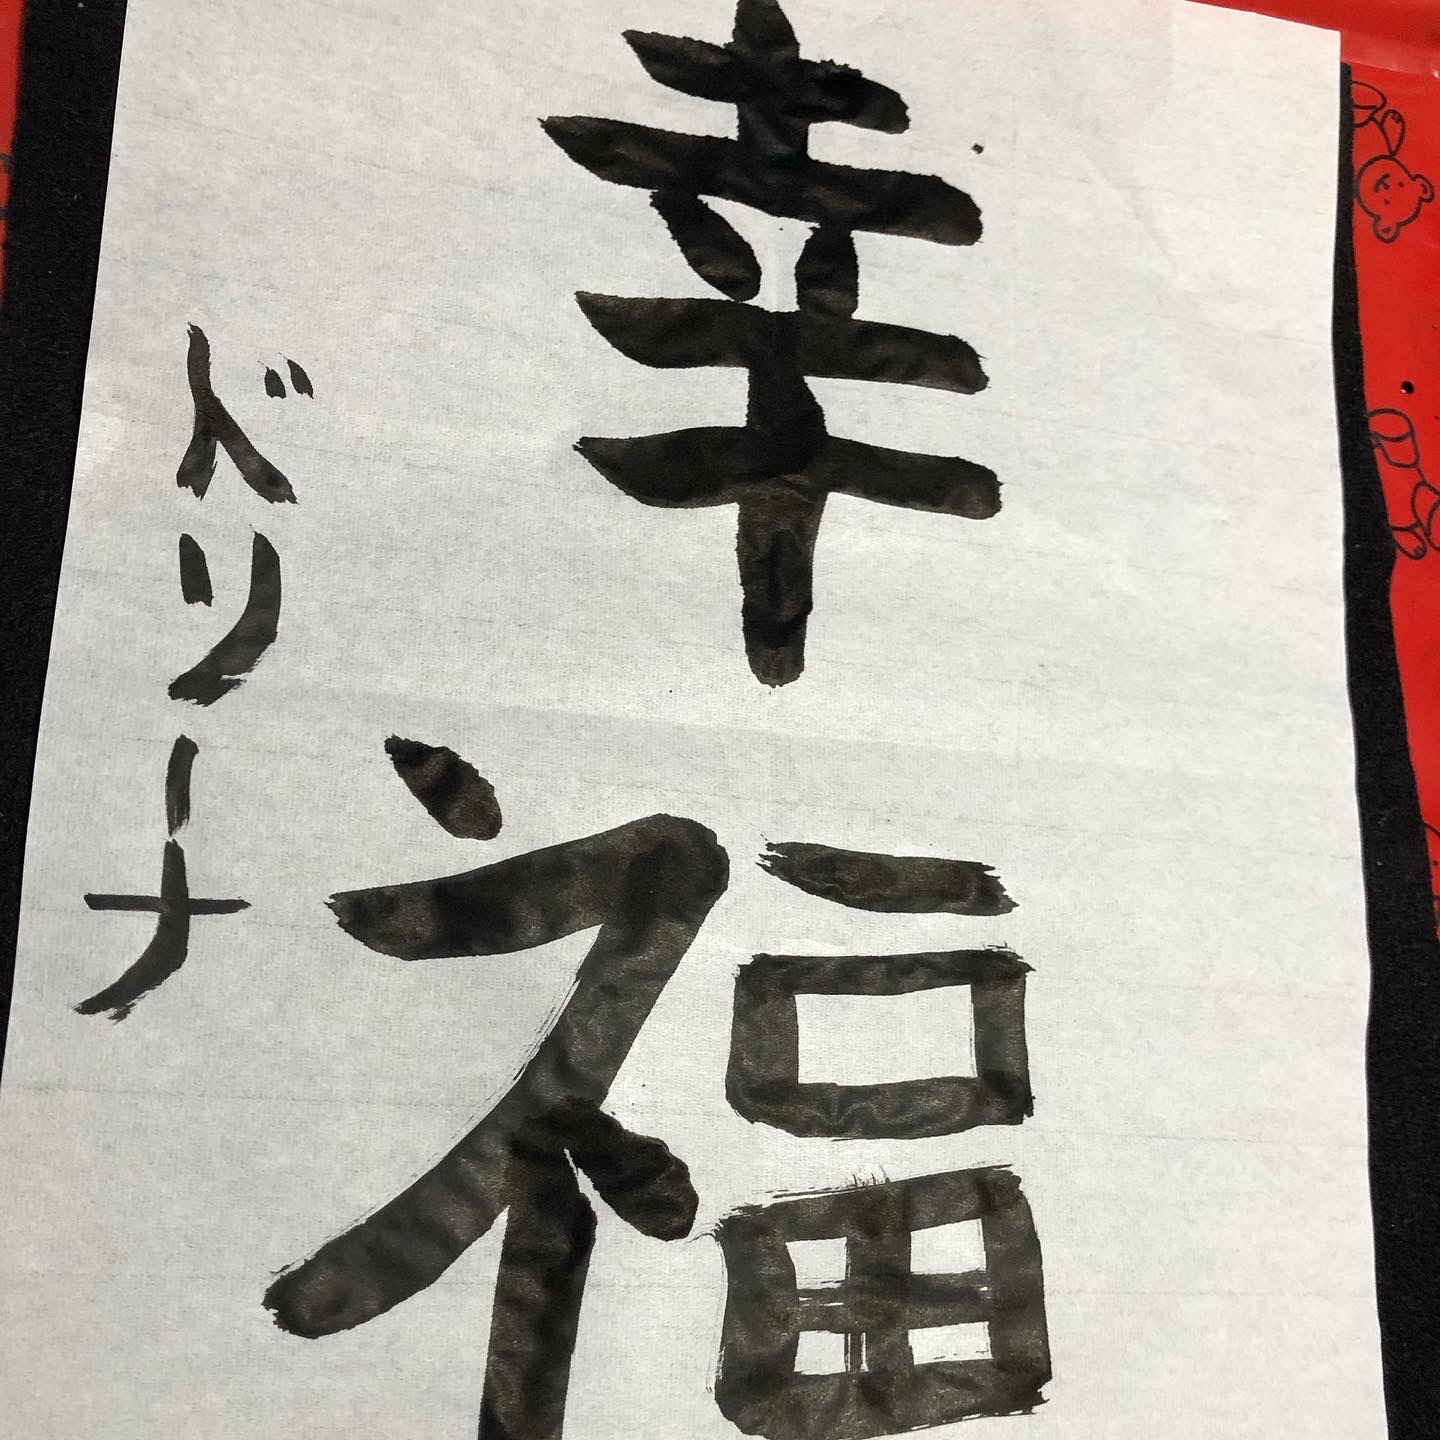 幸福
ドリーナ